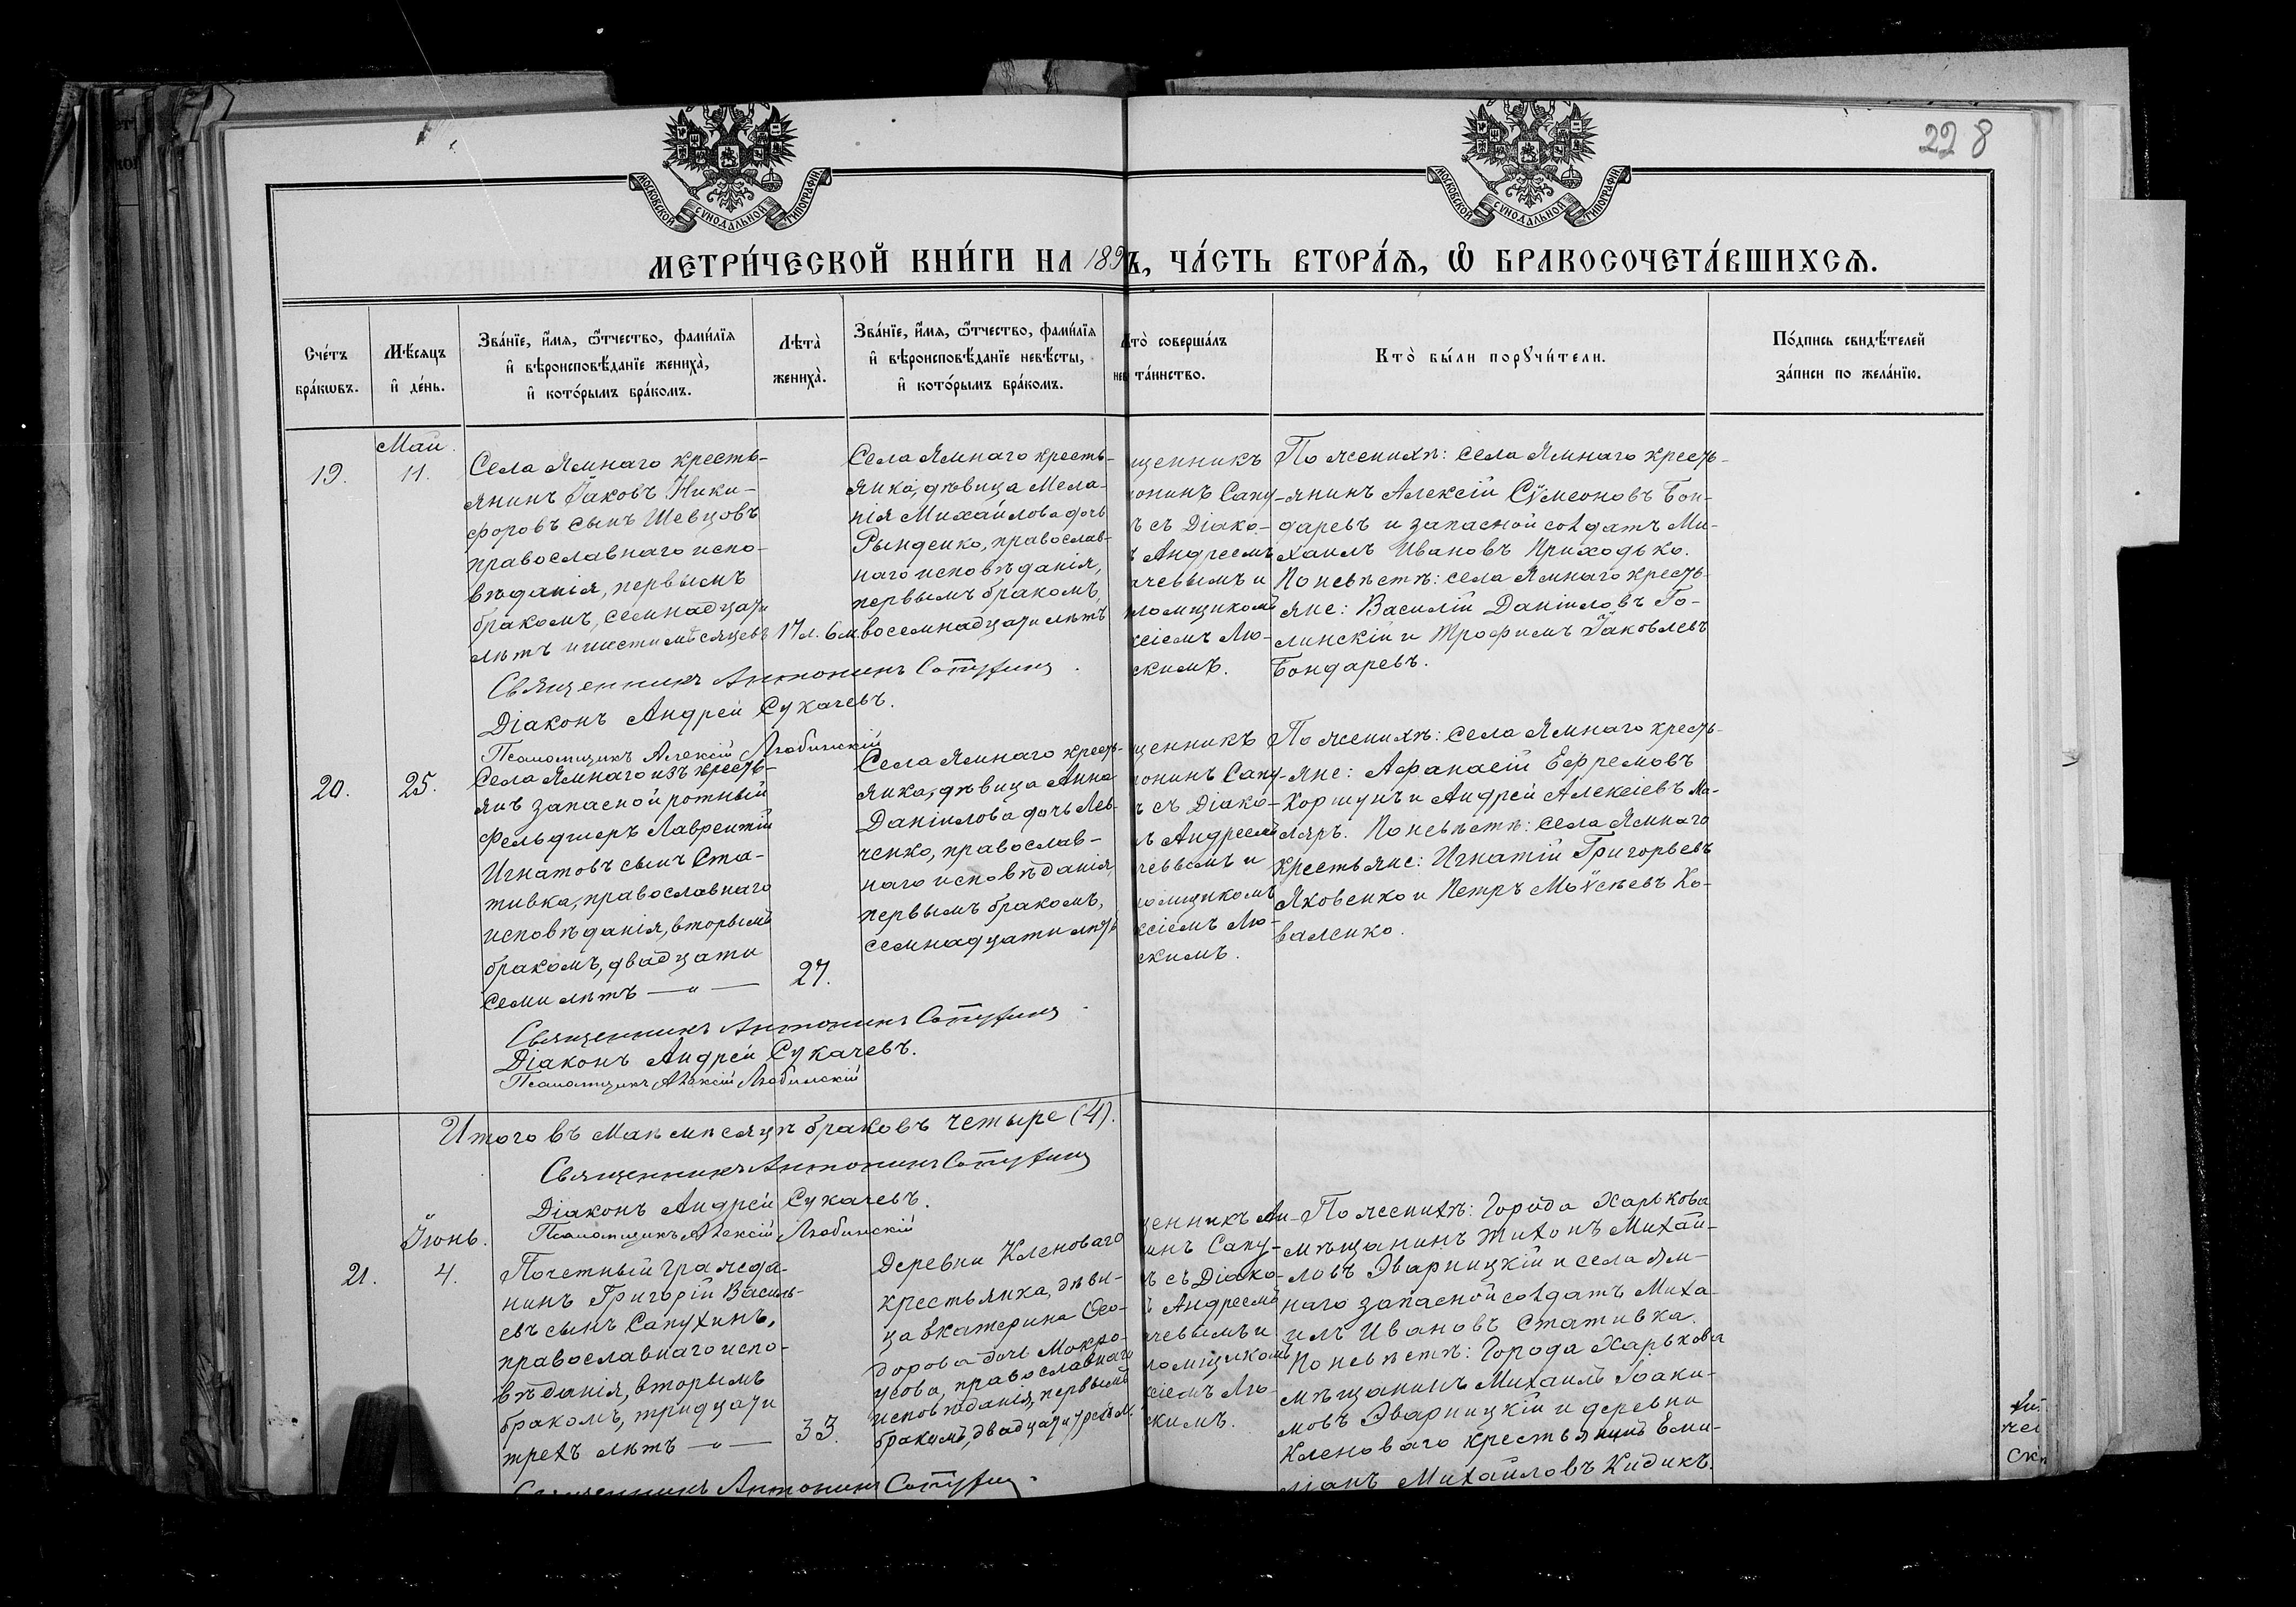 228
МОСКОВСКОЙ СѴНОДАЛЬНОЙ ТИПОГРАФІИ
МОСКОВСКОЙ СѴНОДАЛЬНОЙ ТИПОГРАФІИ
МЕТРИ́ЧЕСКОЙ КНИ́ГИ НА 189 Ъ, ЧА́СТЬ ВТОРА́Ѧ, Ѽ БРАКОСОЧЕТА́ВШИХСѦ.
Сче́тъ
бра́кѡвъ.
Мѣ́сяцъ
и҆ де́нь.
Зва́нїе, и҆́мя, ѻ҆́тчество, фами́лїя
и҆ вѣроисповѣ́данїе жениха̀,
и҆ кото́рымъ бра́комъ.
Лѣта̀
жениха̀.
Зва́нїе, и҆́мя, ѻ҆́тчество, фами́лїя
и҆ вѣроисповѣ́данїе невѣ́сты,
и҆ кото́рымъ бра́комъ.
то̀ соверша́лъ
та́инство.
Кто̀ бы́ли порꙋчи́тели.
По́дпись свидѣ́телей
за́писи по жела́нїю.
19.
Маи.
11.
Села Ямнаго кресть-
янинъ Іаковъ Ники-
форовъ сынъ Шевцовъ
православнаго испо-
вѣданія, первымъ
бракомъ, семнадцати
лѣтъ и шести мѣсяцевъ
17 л. 6 м.
Села Ямнаго кресть-
янка, дѣвица Мела-
нія Михайлова дочь
Рынденко, православ-
наго исповѣданія,
первымъ бракомъ,
восемнадцати лѣтъ
щенникъ
онинъ Сапу-
ъ съ Діако-
ъ Андреемъ
ачевымъ и
ломщикомъ
ксіемъ Лю-
скимъ.
По женихѣ: села Ямнаго кресть-
янинъ Алексій Сѵмеоновъ Бон-
даревъ и запасной солдатъ Ми-
хаилъ Ивановъ Приходько.
По невѣстѣ: села Ямнаго кресть-
яне: Василій Даніиловъ Го-
линскій и Трофимъ Іаковлевъ
Бондаревъ.
Священникъ Антонинъ Сапухинъ.
Діаконъ Андрей Сукачевъ.
Псаломщикъ Алексій Любинскій
20.
25.
Села Ямнаго изъ кресть-
янъ запасной ротный
фельдшеръ Лаврентій
Игнатовъ сынъ Ста-
тивка, православнаго
исповѣданія, вторымъ
бракомъ, двадцати
семи лѣтъ — „ —
27.
Села Ямнаго кресть-
янка, дѣвица Анна
Даніилова дочь Лев-
ченко, православ-
наго исповѣданія,
первымъ бракомъ,
семнадцати лѣтъ
щенникъ
онинъ Сапу-
ъ съ Діако-
ъ Андреемъ
чевымъ и
омщикомъ
ксіемъ Лю-
скимъ.
По женихѣ: села Ямнаго кресть-
яне: Афанасій Ефремовъ
Коршунъ и Андрей Алексіевъ Ма-
ляръ. По невѣстѣ: села Ямнаго
крестьяне: Игнатій Григорьевъ
Яковенко и Петръ Моѵсеевъ Ко-
валенко.
Священникъ Антонинъ Сапухинъ.
Діаконъ Андрей Сукачевъ.
Псаломщикъ Алексій Любинскій
Итого въ Маѣ мѣсяцѣ браковъ четыре (4).
Священникъ Антонинъ Сапухинъ
Діаконъ Андрей Сукачевъ.
Псаломщикъ Алексій Любинскій
21.
Іюнь.
4.
Почетный гражда-
нинъ Григорій Василь-
евъ сынъ Сапухинъ,
православнаго испо-
вѣданія, вторымъ
бракомъ, тридцати
трехъ лѣтъ — „ —
33.
Деревни Кленоваго
крестьянка, дѣви-
ца Екатерина Ѳео-
дорова дочь Мокро-
усова, православнаго
исповѣданія, первымъ
бракомъ, двадцати трехъ л.
щенникъ Ан-
инъ Сапу-
ъ съ Діако-
ъ Андреемъ
ачевымъ и
ломщикомъ
ксіемъ Лю-
скимъ.
По женихѣ: Города Харькова
мѣщанинъ Тихонъ Михай-
ловъ Эварницкій и села Ям-
наго запасной солдатъ Миха-
илъ Ивановъ Стативка.
По невѣстѣ: Города Харькова
мѣщанинъ Михаилъ Іоаки-
мовъ Эварницкій и деревни
Кленоваго крестьянинъ Еми-
ліанъ Михайловъ Кидикъ.
Священникъ Антонинъ Сапухинъ.